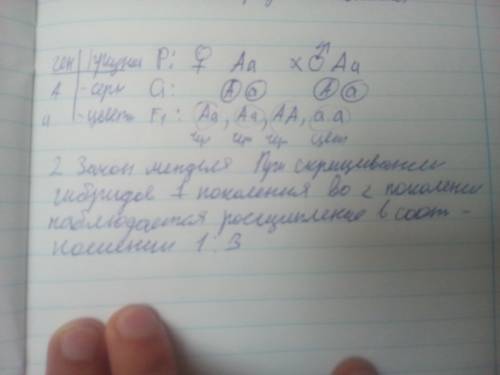 ген признак P: ♀ Aa x ♂ Aa
A - серн G: A a A a
a - цветн F₁: Aa, Aa, AA, aa
чер чер чер цветн
2 Закон менделя При скрищивании
гибридов 1 поколения во 2 поколении
наблюдается росщипление в соот-
ношении 1:3